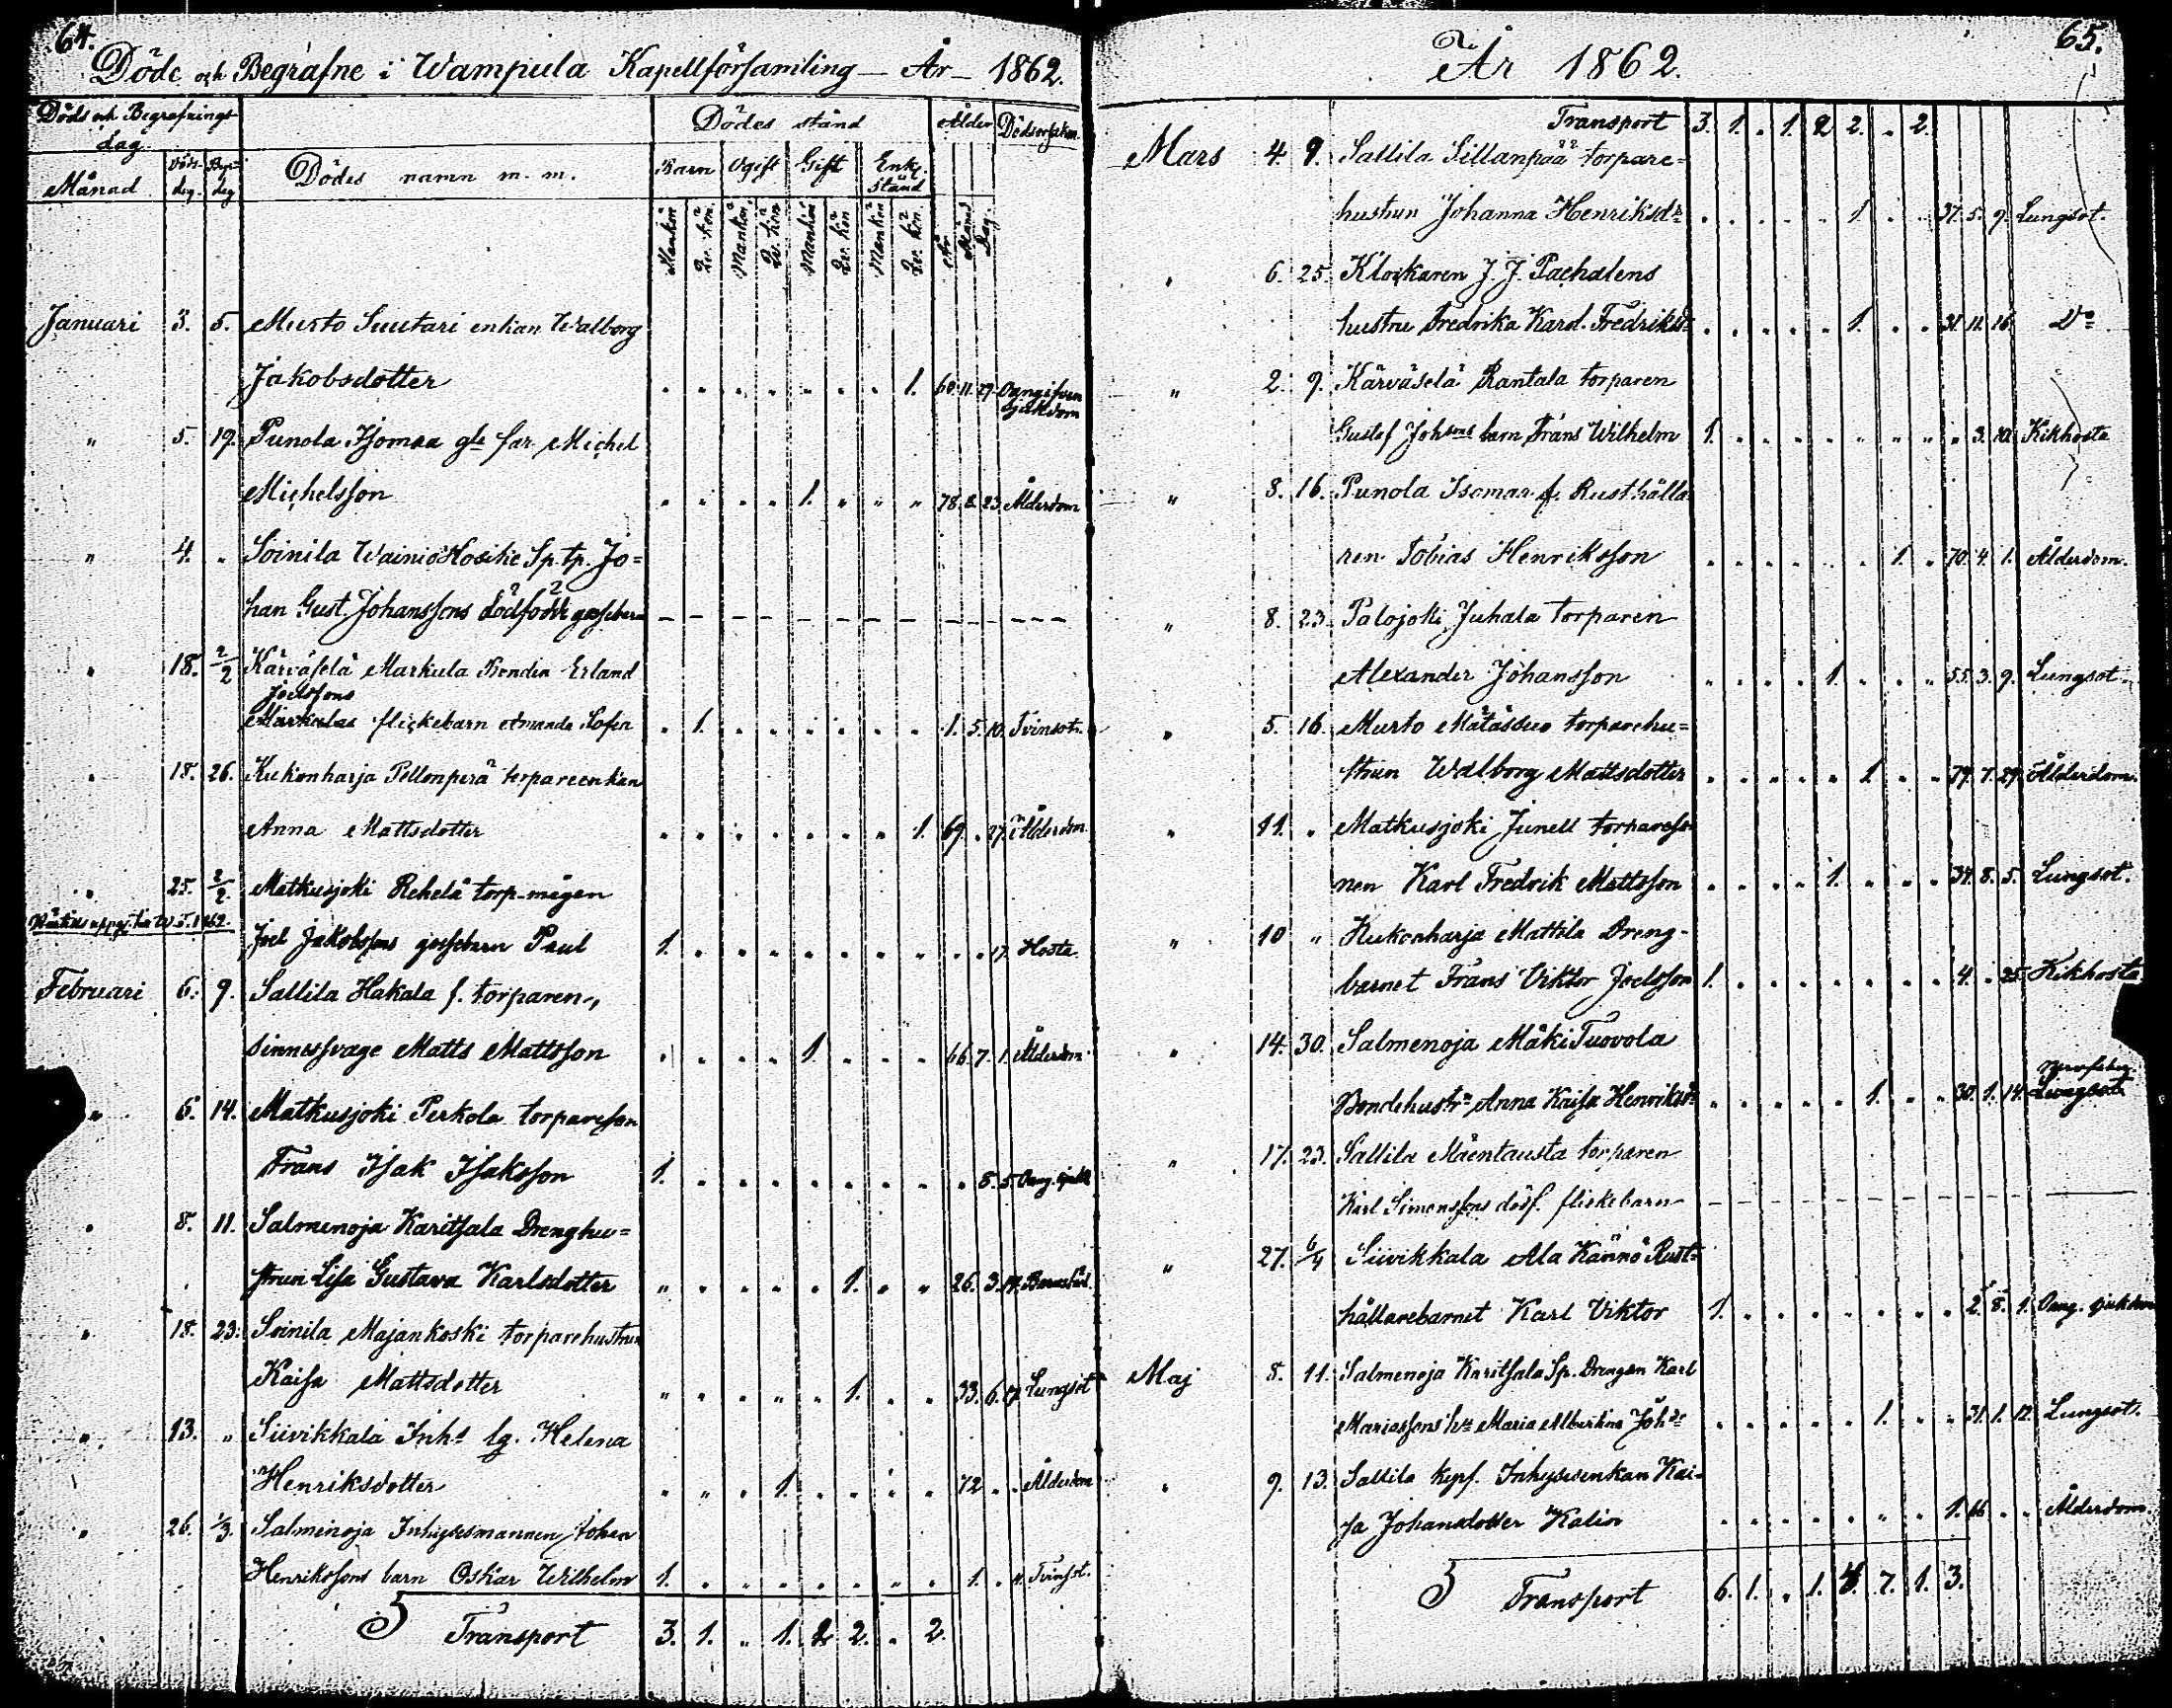 64.
Döde och Begrafne i Wampula Kapellförsamling — År — 1862.
Döds och Begrafnings dag.
Dödes stånd
Ålder
Dödsorsaken
Månad
Döds dag.
Begr: dag
Dödes namn m. m.
Barn
Ogift
Gift
Enkl. stånd
Mankön
Qv. kön
Mankön
Qv. kön
Mankön
Qv. kön
Mankön
Qv. kön
År
Månad
Dag.
Januari 3. 5. Murto Suutari enkan Walborg
Jakobsdotter " " " " " " " 1. 60. 11. 27. Oangifven sjukdom
" 5. 19. Punola Isomaa gle far Michel
Michelsson " " " " 1. " " " 78. 8. 23. Ålderdom
" 4. " Soinila Wainio Hosike Sp. tp. Jo=
han Gust. Johanssons dödfödde gossebarn
" 18. 2/2 Kärväselä Markula Bonden Erland
Joelssons
flickebarn Amanda Sofia " 1. " " " " " " 1. 5. 10. Tvinsot.
" 18. 26. Kukonharja Pellonperä torpareenkan
Anna Mattsdotter " " " " " " " 1. 69. " 27. Ålderdom
" 25. 2/2. Matkusjoki Rehelä torp-mågen
Joel Jakobssons gossebarn Paul 1. " " " " " " " " " 17. Hosta.
Februari 6. 9. Sallila Hakala f. torparen,
sinnessvage Matts Mattsson " " " " 1. " " " 66. 7. 1. Ålderdom
" 6. 14. Matkusjoki Perkola torpareson
Frans Isak Isaksson 1. " " " " " " " " 8. 5. Oang. sjukd.
" 8. 11. Salmenoja Karitsala Drenghu=
strun Lisa Gustava Karlsdotter " " " " " 1. " " 26. 3. 14. Barnsbörd.
" 18. 23. Soinila Majankoski torparehustrun
Kaisa Mattsdotter " " " " " 1. " " 33. 6. 17. Lungsot
" 13. " Siivikkala Inhs lg. Helena
Henriksdotter " " " 1. " " " " 72. " " Ålderdom
" 26. 1/3. Salmenoja Inhysesmannen Johan
Henrikssons barn Oskar Wilhelm 1. " " " " " " " 1. " 11. Tvinsot.
Transport 3. 1. " 1. 2. 2. " 2.
65.
År 1862.
Transport 3. 1. " 1. 2. 2. " 2.
Mars 4. 9. Sallila Sillanpää torpare=
hustrun Johanna Henriksdr " " " " " 1. " " 37. 5. 9. Lungsot.
" 6. 25. Klockaren J. J. Pachalens
hustru Fredrika Karol. Fredriksdr " " " " " 1. " " 31. 11. 16. Do
" 2. 9. Kärväselä Rantala torparen
Gustaf Johssons barn Frans Wilhelm 1. " " " " " " " " 3. 10. Kikhosta
" 8. 16. Punola Isomaa f. Rusthålla
ren Tobias Henriksson " " " " " " 1. " 70. 4. 1. Ålderdom.
" 8. 23. Palojoki Juhala torparen
Alexander Johansson " " " " 1. " " " 55. 3. 9. Lungsot.
" 5. 16. Murto Mätässuo torparehu=
strun Walborg Mattsdotter " " " " " 1. " " 79. 7. 29. Ålderdom.
" 11. " Matkusjoki Junell torpareso
nen Karl Fredrik Mattsson " " " " 1. " " " 34. 8. 5. Lungsot.
" 10 " Kukonharja Mattila Dreng-
barnet Frans Viktor Joelsson 1. " " " " " " " 4. " 25. Kikhosta.
" 14. 30. Salmenoja Mäki Tuovola
Bondehustr. Anna Kaisa Henriksdr " " " " " 1. " " 30. 1. 14. Nervfeber.
" 17. 23. Sallila Mäentausta torparen
Karl Simonssons döf. flickebarn
" 27. 6/4 Siivikkala Ala Kännö Rust=
hållarebarnet Karl Viktor 1. " " " " " " " 2. 8. 1. Oang. sjukdom
Maj 8. 11. Salmenoja Karitsala Sp. Drengen Karl
Mariassons hu Maria Albertina Johdr " " " " " 1. " " 31. 1. 12. Lungsot.
" 9. 13. Sallila kpf. Inhysesenkan Kai-
sa Johansdotter Kalin " " " " " " " 1. 66. " " Ålderdom
Transport 6. 1. " 1. 4. 7. 1. 3.